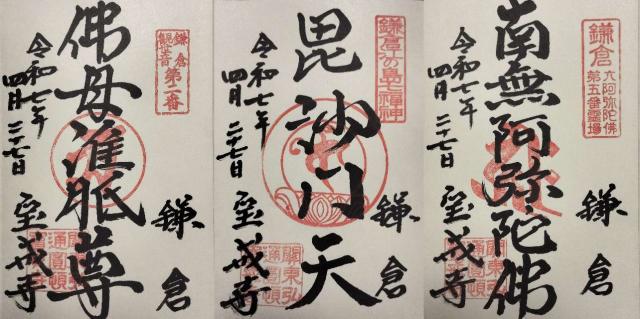 鎌倉
觀世音
第二番
佛母准胝尊
令和七年
四月二十七日
鎌倉
宝戒寺
鎌倉江の島七福神
毘沙門天
令和七年
四月二十七日
鎌倉
宝戒寺
關東弘
通圓頓
鎌倉
六阿弥陀佛
第五番霊場
南無阿弥陀佛
令和七年
四月二十七日
鎌倉
宝戒寺